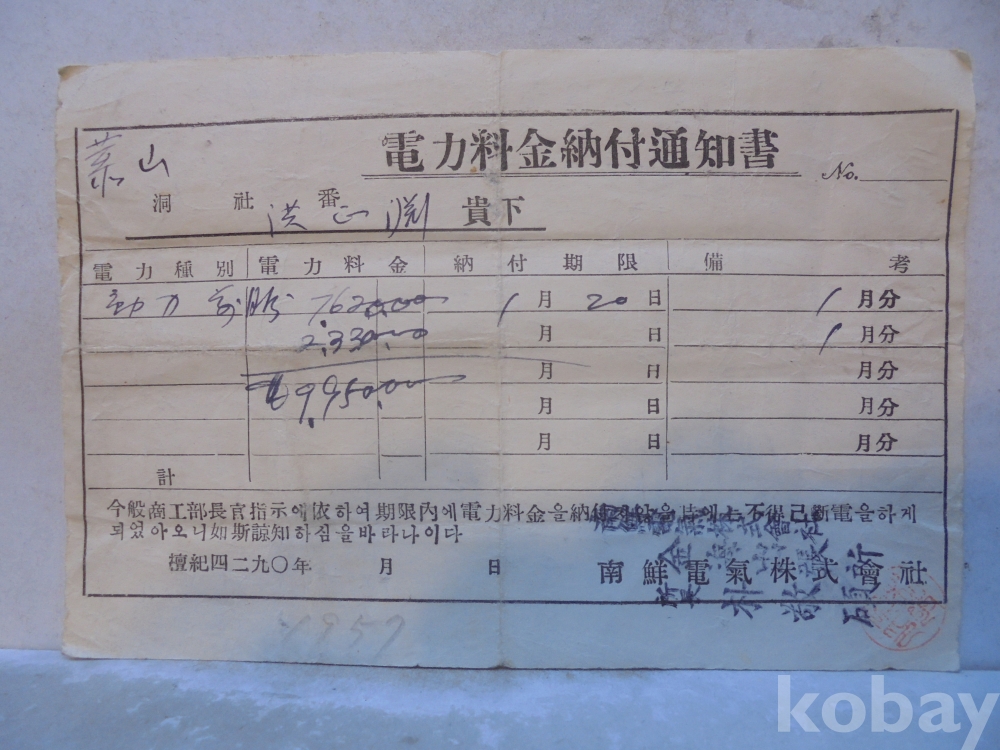 電力料金納付通知書
山 No.
洞 社 番
洪 淵 貴下
電力種別 電力料金 納付期限 備考
動力 7620.00 1月 20日 1月分
2,330.00 月 日 1月分
9,950.00 月 日 月分
月 日 月分
月 日 月分
計
今般商工部長官指示에依하여期限內에電力料金을納付치않을時에는不得已斷電을하게
되었아오니如斯諒知하심을바라나이다
檀紀四二九〇年 月 日 南鮮電氣株式會社
1957
kobay